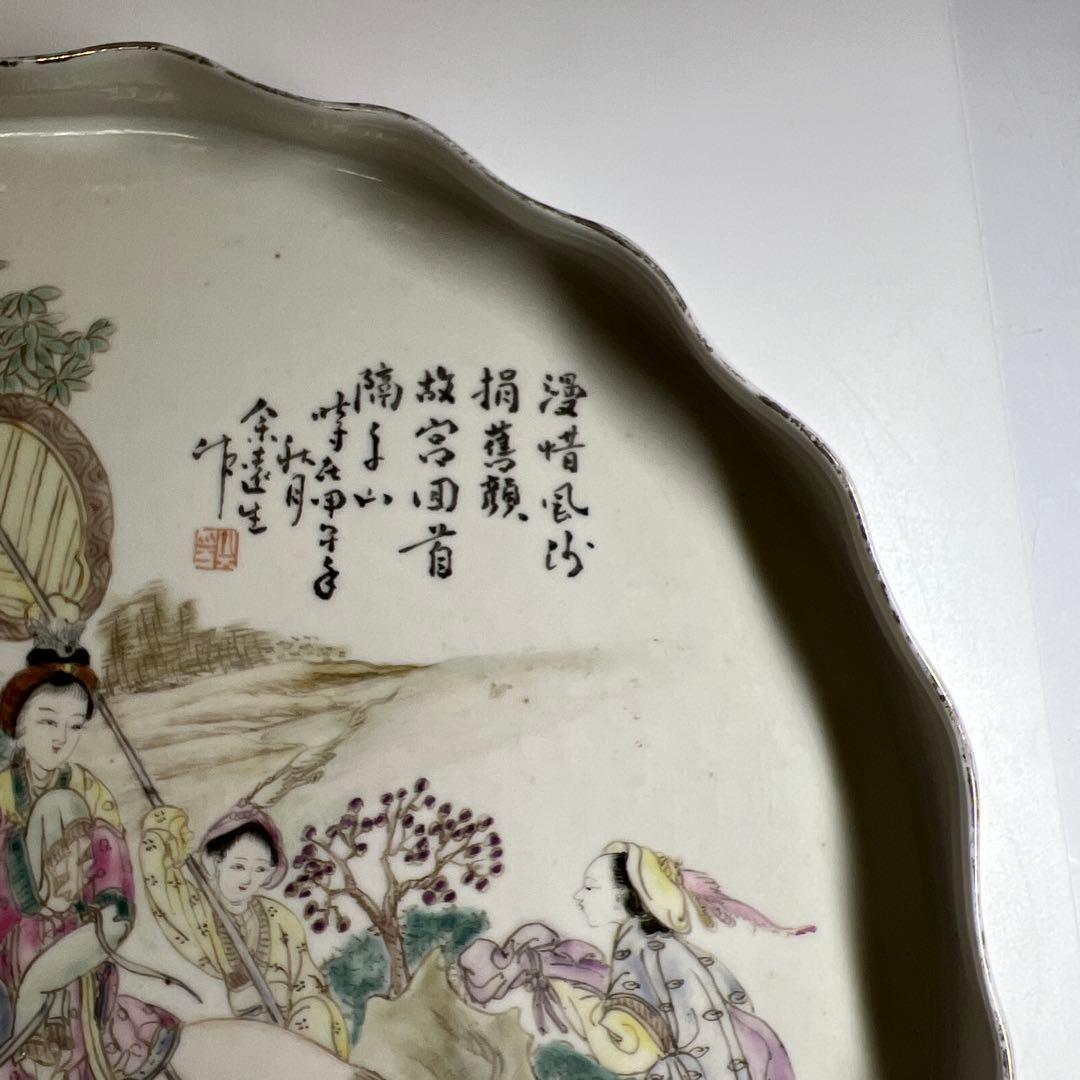 漫惜風沙
捐舊顏
故宮回首
隔千山
時在甲午年
秋月
余遠生
作